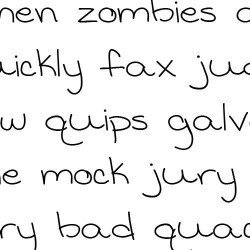 nen zombies
uickly fax jud
w quips galv
e mock jury
ry bad quad